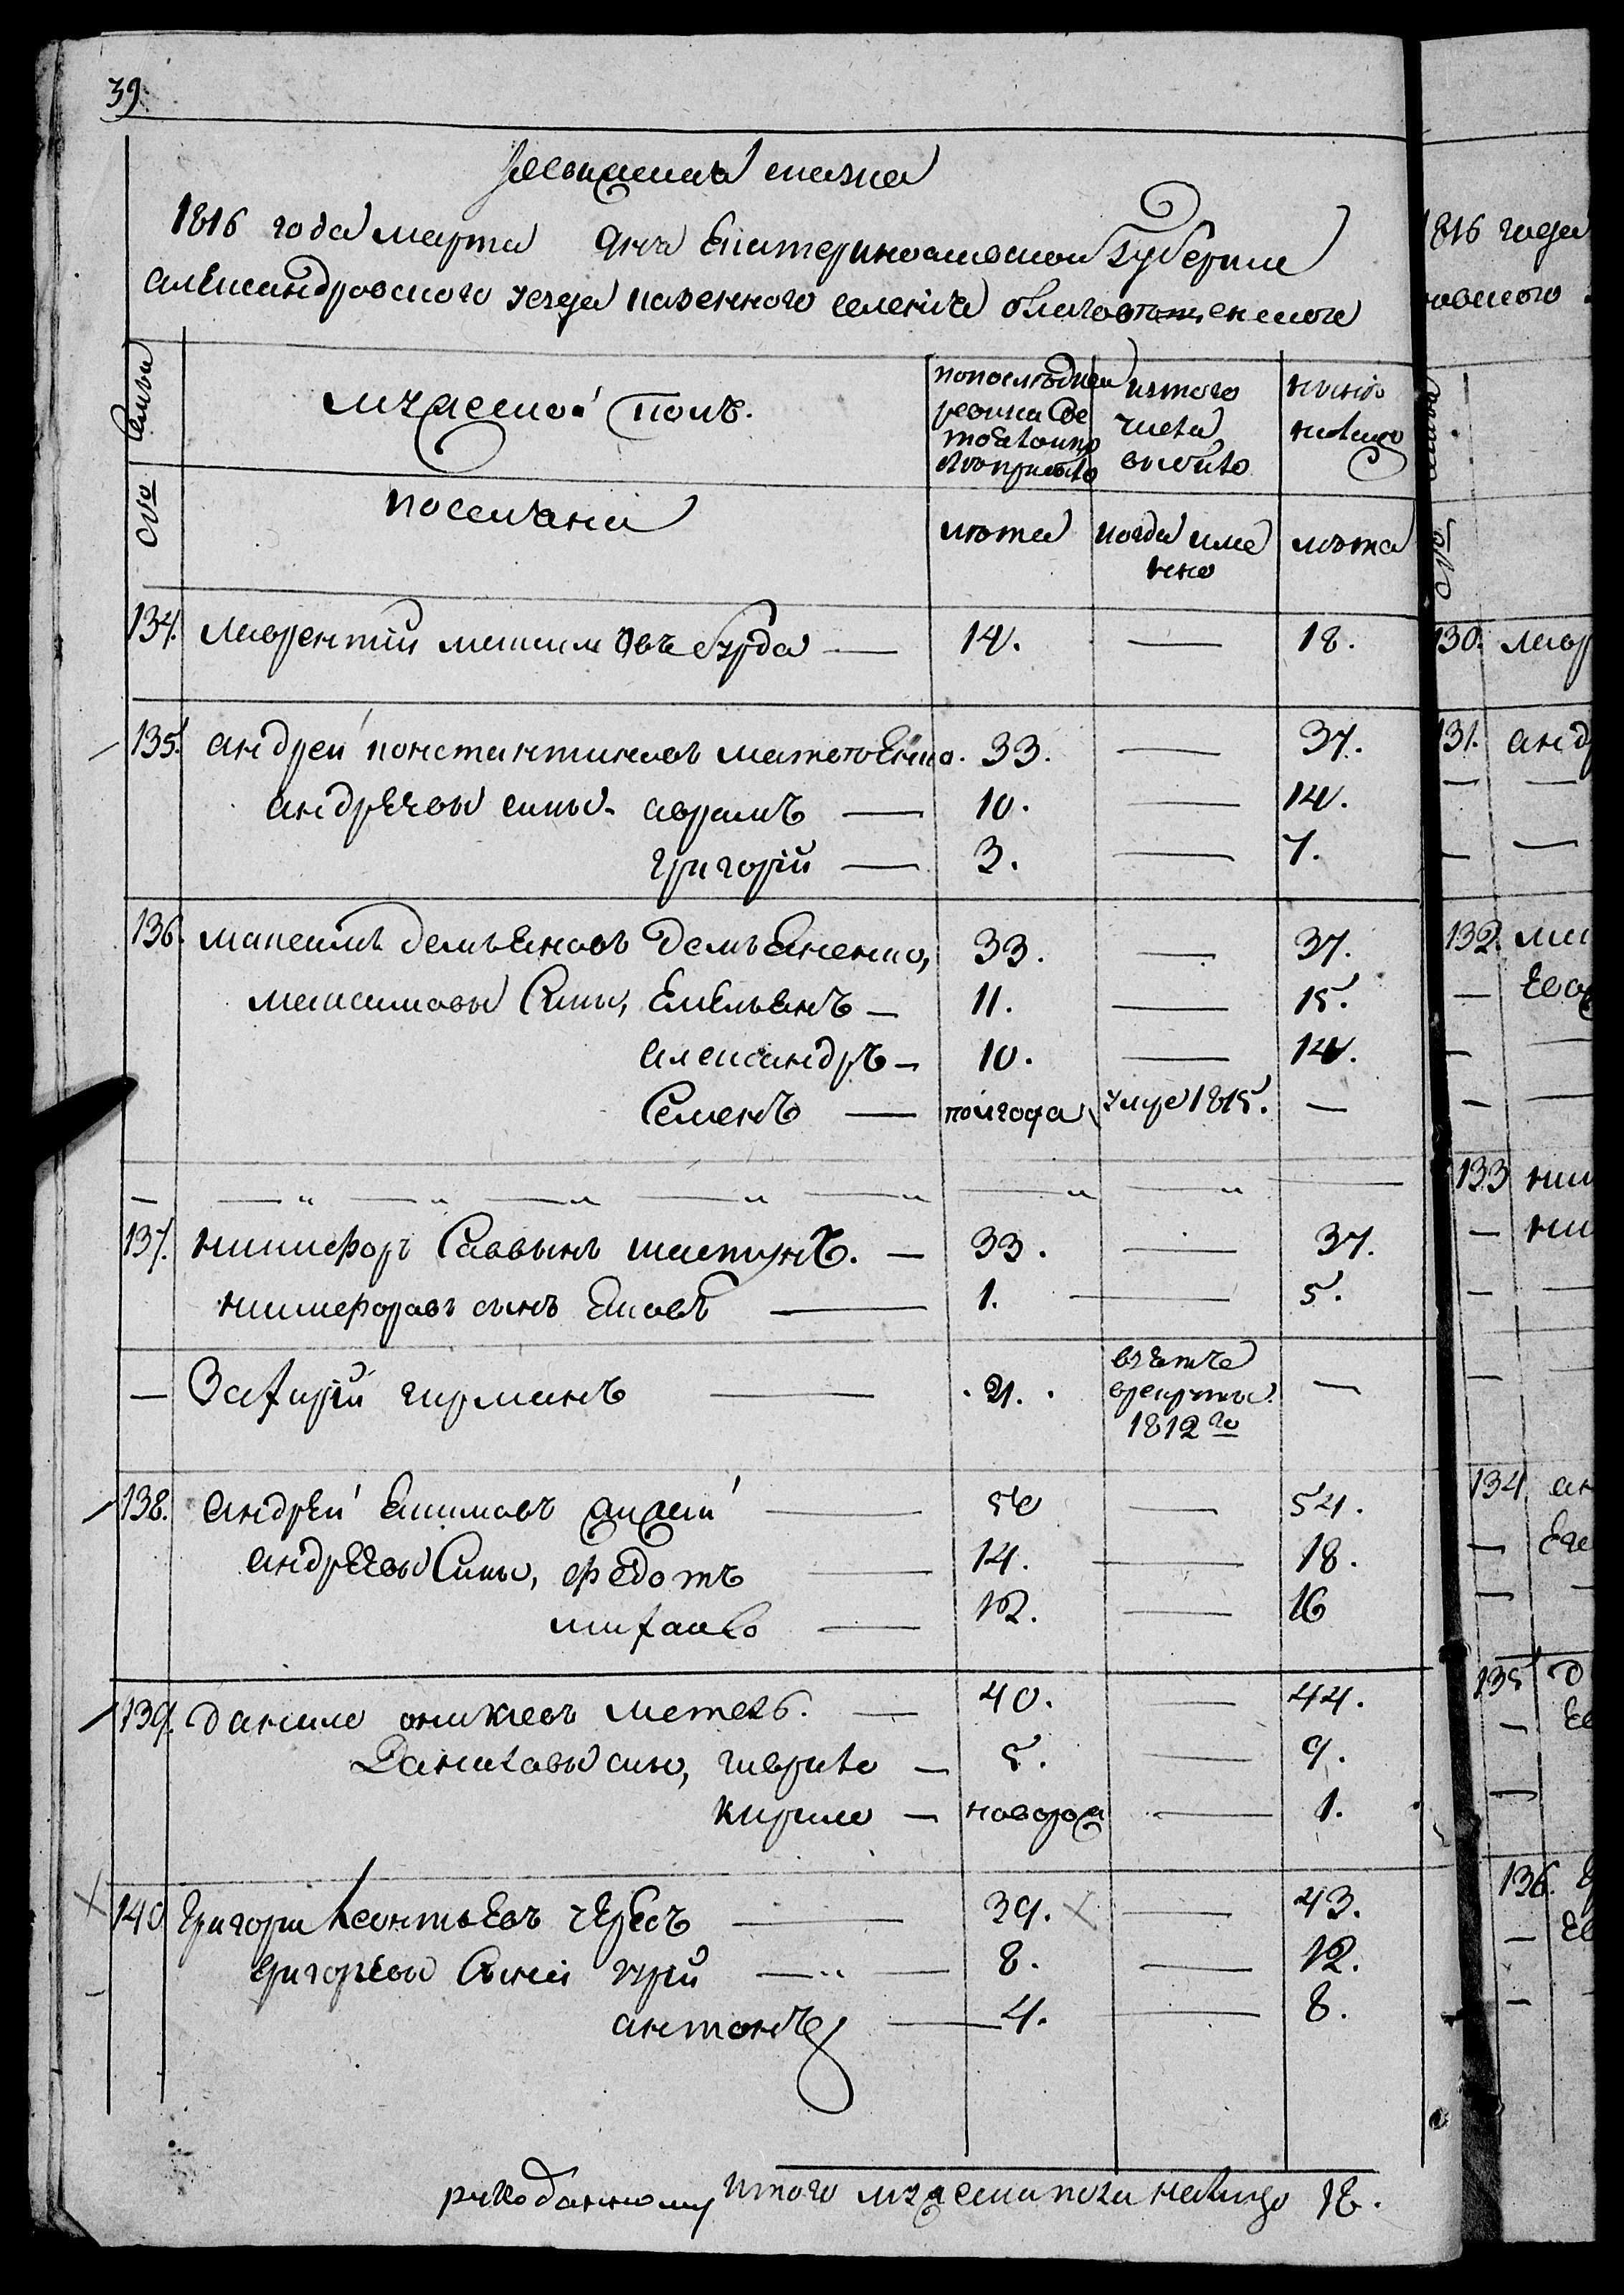 39.
Ревижская сказка
1816 года марта дня Екатеринославской Губернии
Александровского уезда казенного селения благовещенского
Семьи
мужеской полъ.
попоследней ревизии состояло
изтого числа выбыло
ныне налицо
№
поселяне
лета
когда именно
лета
134. лаврентий максимовъ бурда — 14. — 18.
135. андрей константиновъ матвеенко. 33. — 37.
андреевы сыны. аврамъ — 10. — 14.
григорий — 3. — 7.
136. максимъ демьяновъ Демьяненко, 33. — 37.
максимовы Сыны, Емельянъ — 11. — 15.
александръ — 10. — 14.
Семенъ — полгода умре 1815. —
137. никифоръ Саввинъ шастунъ. — 33. — 37.
никифоровъ сынъ Яковъ — 1. — 5.
— Захарий гирманъ — 21. взятъ врекруты 1812го —
138. андрей Екимовъ — 50 — 54.
андреевы Сыны, федотъ — 14. — 18.
михайло — 12. — 16
139. данило оникиевъ метель. — 40. — 44.
Даниловы сыны, гаврило — 5. — 9.
кирило — новорож — 1.
140 Григори Леонтьевъ чересъ — 39. — 43.
григорьевы Сыни гурій — 8. — 12.
антонъ — 4. — 8.
итого мужеска пола налицо 18.
1816 года
1816
130. лавр
131. анд
132. ма
133 ник
134 ан
135 д
136.